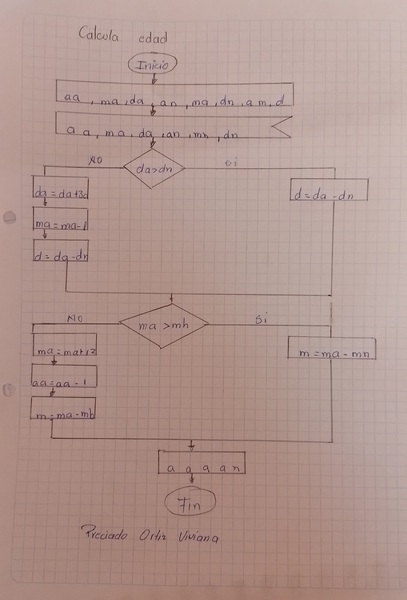 Calcula edad
Inicio
aa, ma, da, an, ma, dn, am, d
a a, ma, da, an, mn, dn
NO da>dn si
da=da+3d d=da-dn
ma=ma-1
d=da-dn
NO ma>mh Si
ma=ma+12 m=ma-mn
aa=aa-1
m=ma-mh
a a a a n
Fin
Preciado Ortiz Viviana